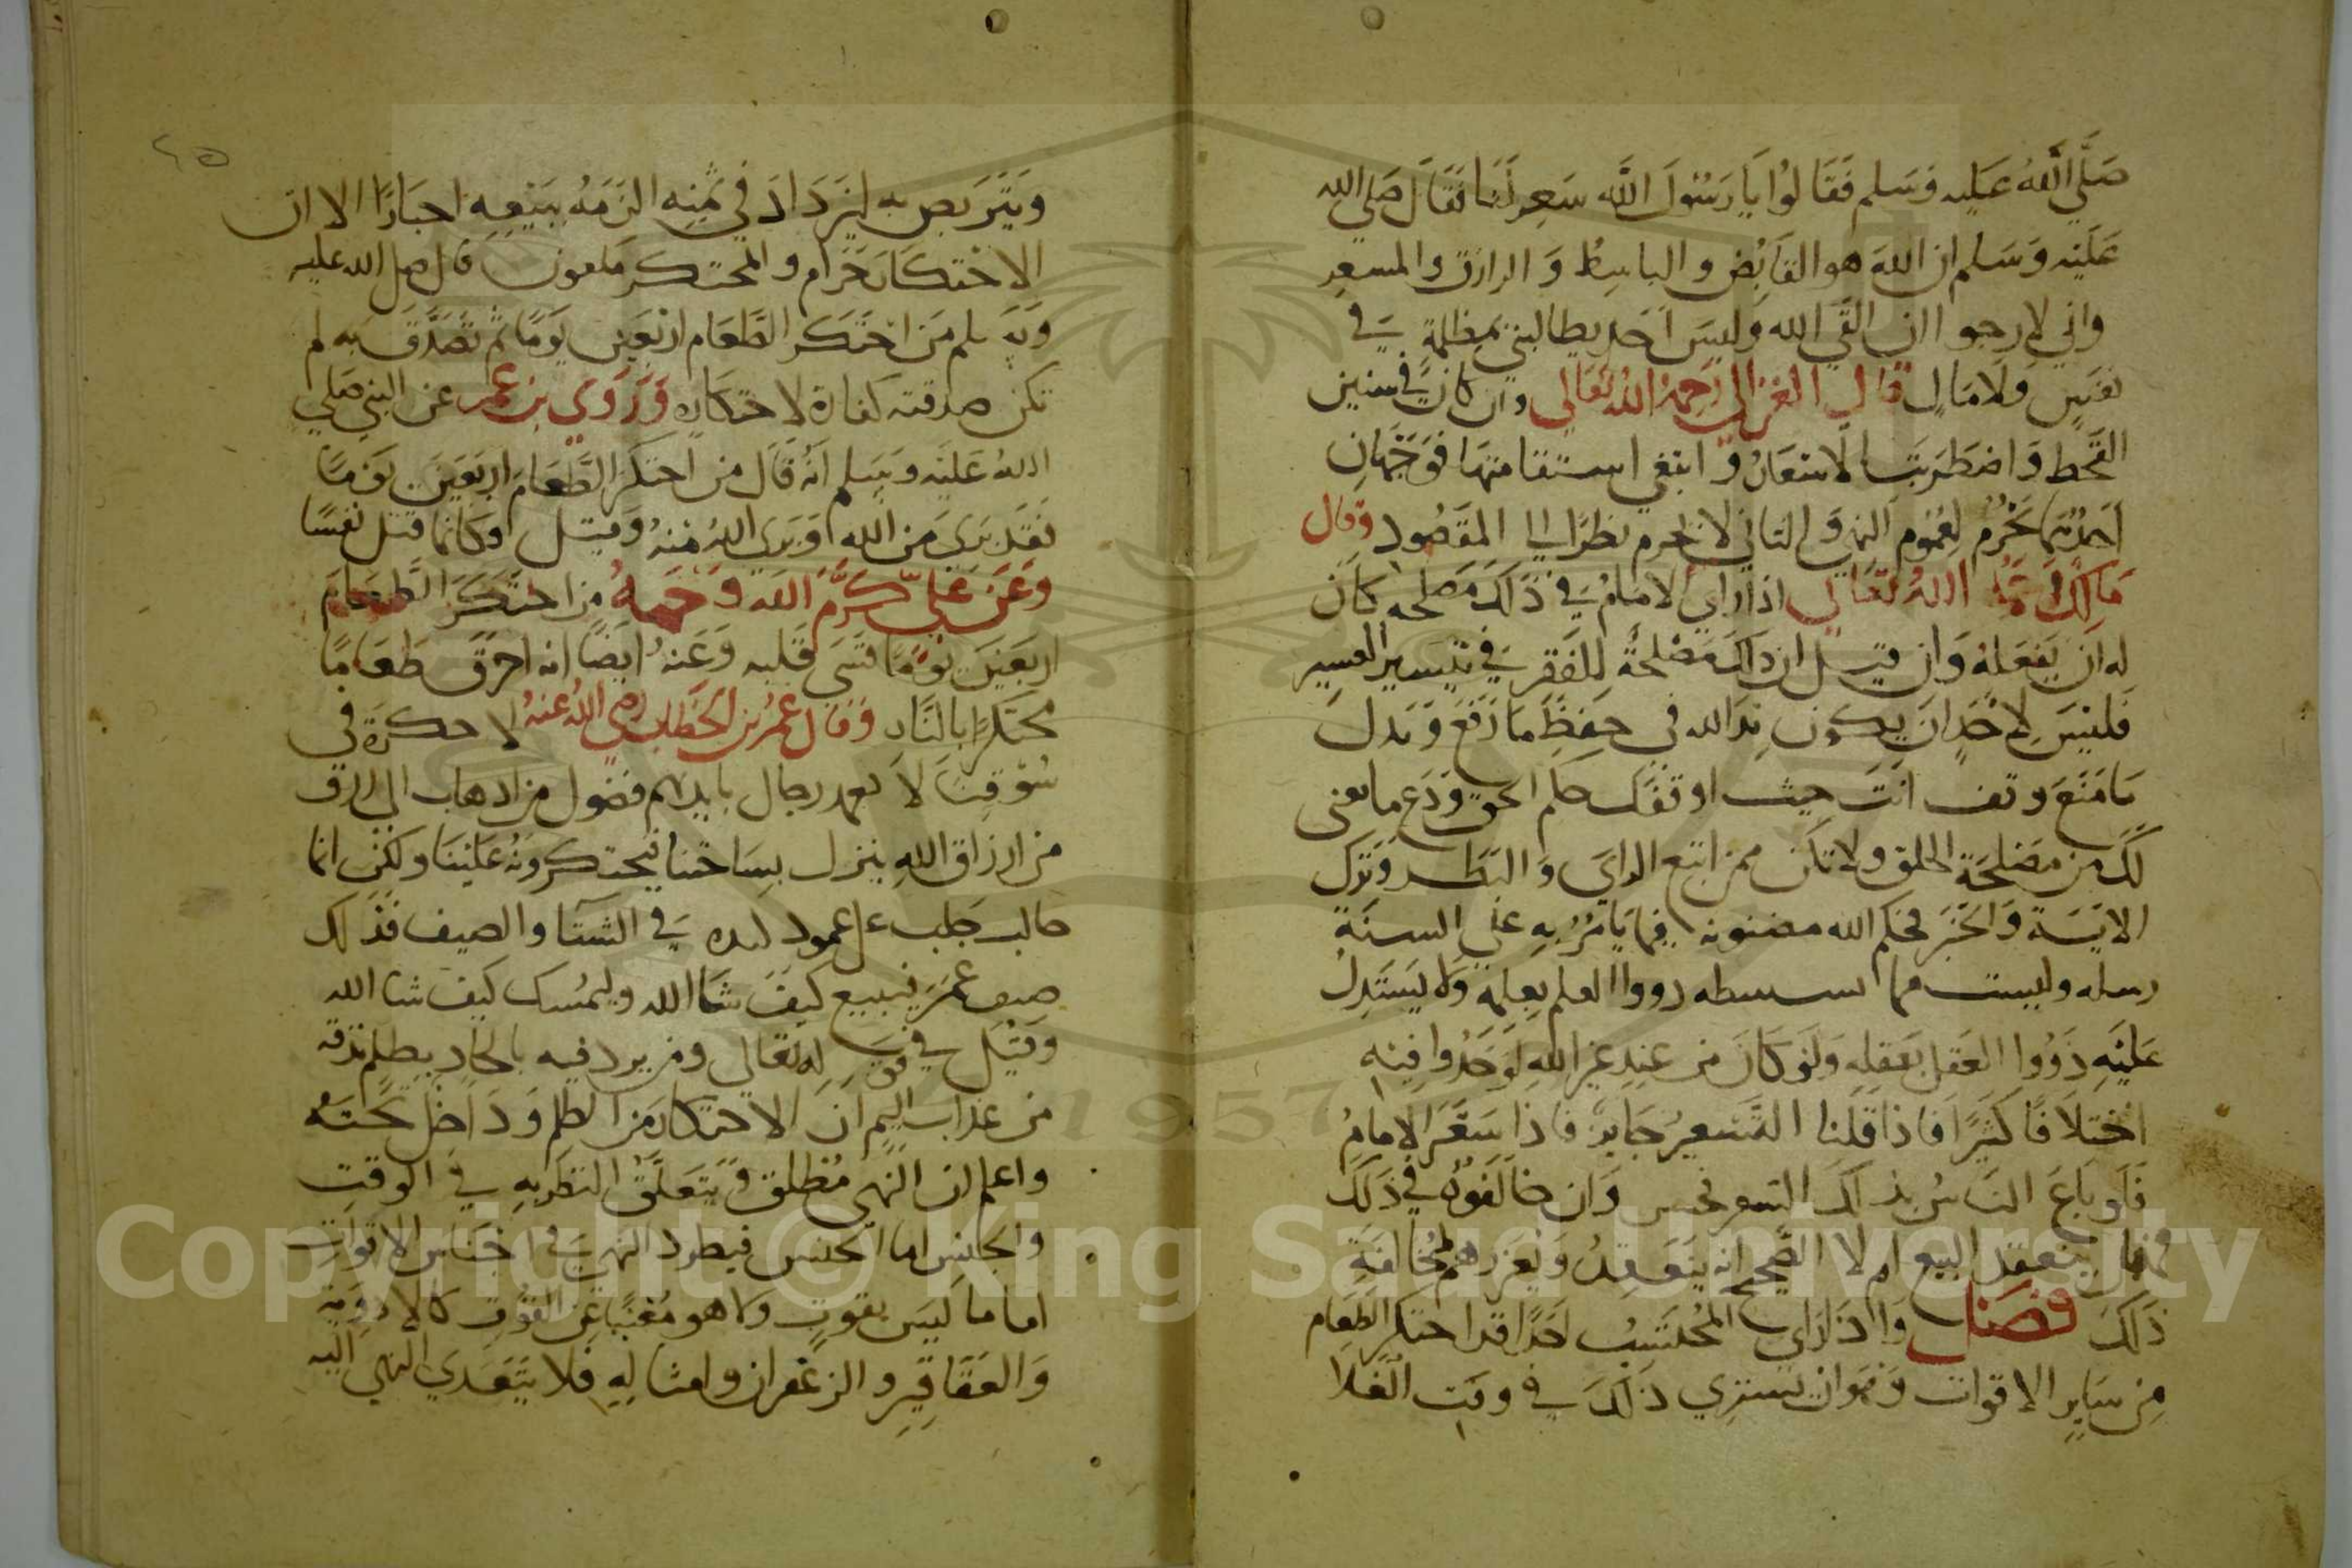 صَلَّي اللّهُ عَليه وَسَلم فَقَالوُا يَا رَسُولَ اللَّه سَعِر لَنَا فَقَالَ صَلى الله
عَلَيْه وَسَلم ان اللهَ هو القَابُض والباسِط وَالرازق والمسعِر
واني لارجو اان القَي الله وَليسَ اَحَد يطالبني بمظلمةٍ في
نَفسٍ وَلَا مَالٍ قال الغزالي رَحِمهُ اللهُ تَعَالي وان كانَ في سنين
القَحط وَاضطَرَبَت الاسْعَارُ وَابتغي استقامتهَا فوَجَهان
اَحدُهمَا يَحْرُم لِعُموُم النهي وَالثاني لا يحرم نظرًا الي المقصُود وَقال
مَالِك رَحمَهُ اللهُ تَعَالي اذا راي الامَامُ في ذَلكَ مَصلحه كَانَ
له اَن يَفعَلهُ وَان قيل ان ذاك مَصْلحةٌ للفَقر في تيسير العَسِير
فَليْسَ لاحَدٍ ان يكون يد الله في حِفظ مَا رَفع وَبدل
مَا مَنَعَ وقف اَنتَ حيث اوقفك حكم الحق وَدَع ما يعنى
لَكَ مِن مَصْلحَة الخلق ولا تكن ممن اتبع الراي وَالنظر وَتَرك
الايَة وَالخَبَر فحكم الله مضنونه فيما يَامُرُ بهِ علي السنَة
رسله وليست مما يستنبطه دووا العلم بعلمه وَلا يَستَدِل
عَليْهِ ذَوُوا العَقل بعَقلِهِ وَلوْ كانَ من عِندِ غير اللهِ لوَجَدُوا فيهِ
اختِلَافًا كَثيرًا فاذا قُلنا التَسعيرُ جَايز فاذا سَعَّرَ الامامُ
فَلو بَاعَ الناسُ بذلك السعر فحسن وَان خالفوُه في ذلكَ
فهَل ينعقد البيع ام لا الصَّحِيح انه يَنَعقِدُ وَيعزرهم لمخالفَةِ
ذلكَ فصل وَاذا رَاي المُحتَسِبُ اَحَدًا قد احتكر الطعام
مِن سَايِر الاقوات وَهوَ ان يَشتري ذلكَ في وقت الغَلا
وَيَتَربص به ليَزدَادَ في ثمَنِه الزَمَهُ بَيْعِهِ اجبارًا الا ان
الاحْتكارَ حَرَام والمحتكر مَلعون قال صلي الله عليه
وَسَلم مَن احتَكَر الطَّعَام اربَعين يَومًا ثُم تَصَدَّقَ بَه لم
تكن صدقته كفارة لاحتكَاره وَرَوَي بن عُمر عن النبي صَلي
اللهُ عَليه وَسَلم اَنَهُ قَالَ من احتكَر الطَّعَامَ اربَعَينَ يَومًا
فَقَد بَري مَن الله وَبَري اللهُ مِنهُ وَقيل اوكانما قتل نفسًا
وَعَن عَلِيّ كَرَّمَ الله وَجهَهُ من احتَكَرَ الطَّعَام
اربَعينَ يَوْمًا قَسَي قَلبه وَعَنهُ ايضًا انه احرَقَ طعَامًا
محتَكَرًا بالنَّار وَقَال عمَرُ بن الخَطاب رضي اللهُ عنهُ لا حكرَة في
سُوقِنَا لا يعمد رجال بايديهم فضول من اذهاب الي رزق
من ارزاق اللهِ ينزل بسَاحَتنا فيحتكروُنهُ عَليْنا ولكن انما
جالب جَلب علي عمود كبده في الشتَا والصيف فذلك
ضيف عُمَر فيبيع كيَف شَا الله وليمسُك كيف شا الله
وَقيْل في قولِهِ تَعَالي ومن يرد فيه بالحاد بظلم نذقه
من عذاب اليم ان الاحتكار مَن الظلم وَدَاخل تَحتَهُ
واعلم ان النَهي مُطلق وَيَتَعَلَّقُ النظر به في الوقتِ
والجنِس اما الجنس فيطرد النهي في اجنَاس الاقواتِ
اما ما ليَس بقوتٍ ولا هو مُعينًا عَن القُوت كالادويَة
وَالعَقَاقِيرِ والزعفران وامثالِهِ فلا يَتَعَدي النهي اليه
Copyright © King Saud University
1957